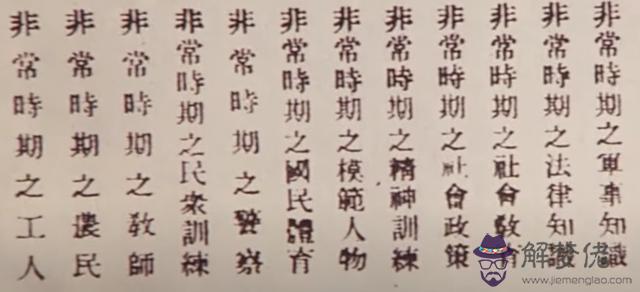 非常時期之軍事知識
非常時期之法律知識
非常時期之社會教育
非常時期之社會政策
非常時期之精神訓練
非常時期之模範人物
非常時期之國民體育
非常時期之警察
非常時期之民衆訓練
非常時期之教師
非常時期之農民
非常時期之工人
解梦佬
www.jiemenglao.com